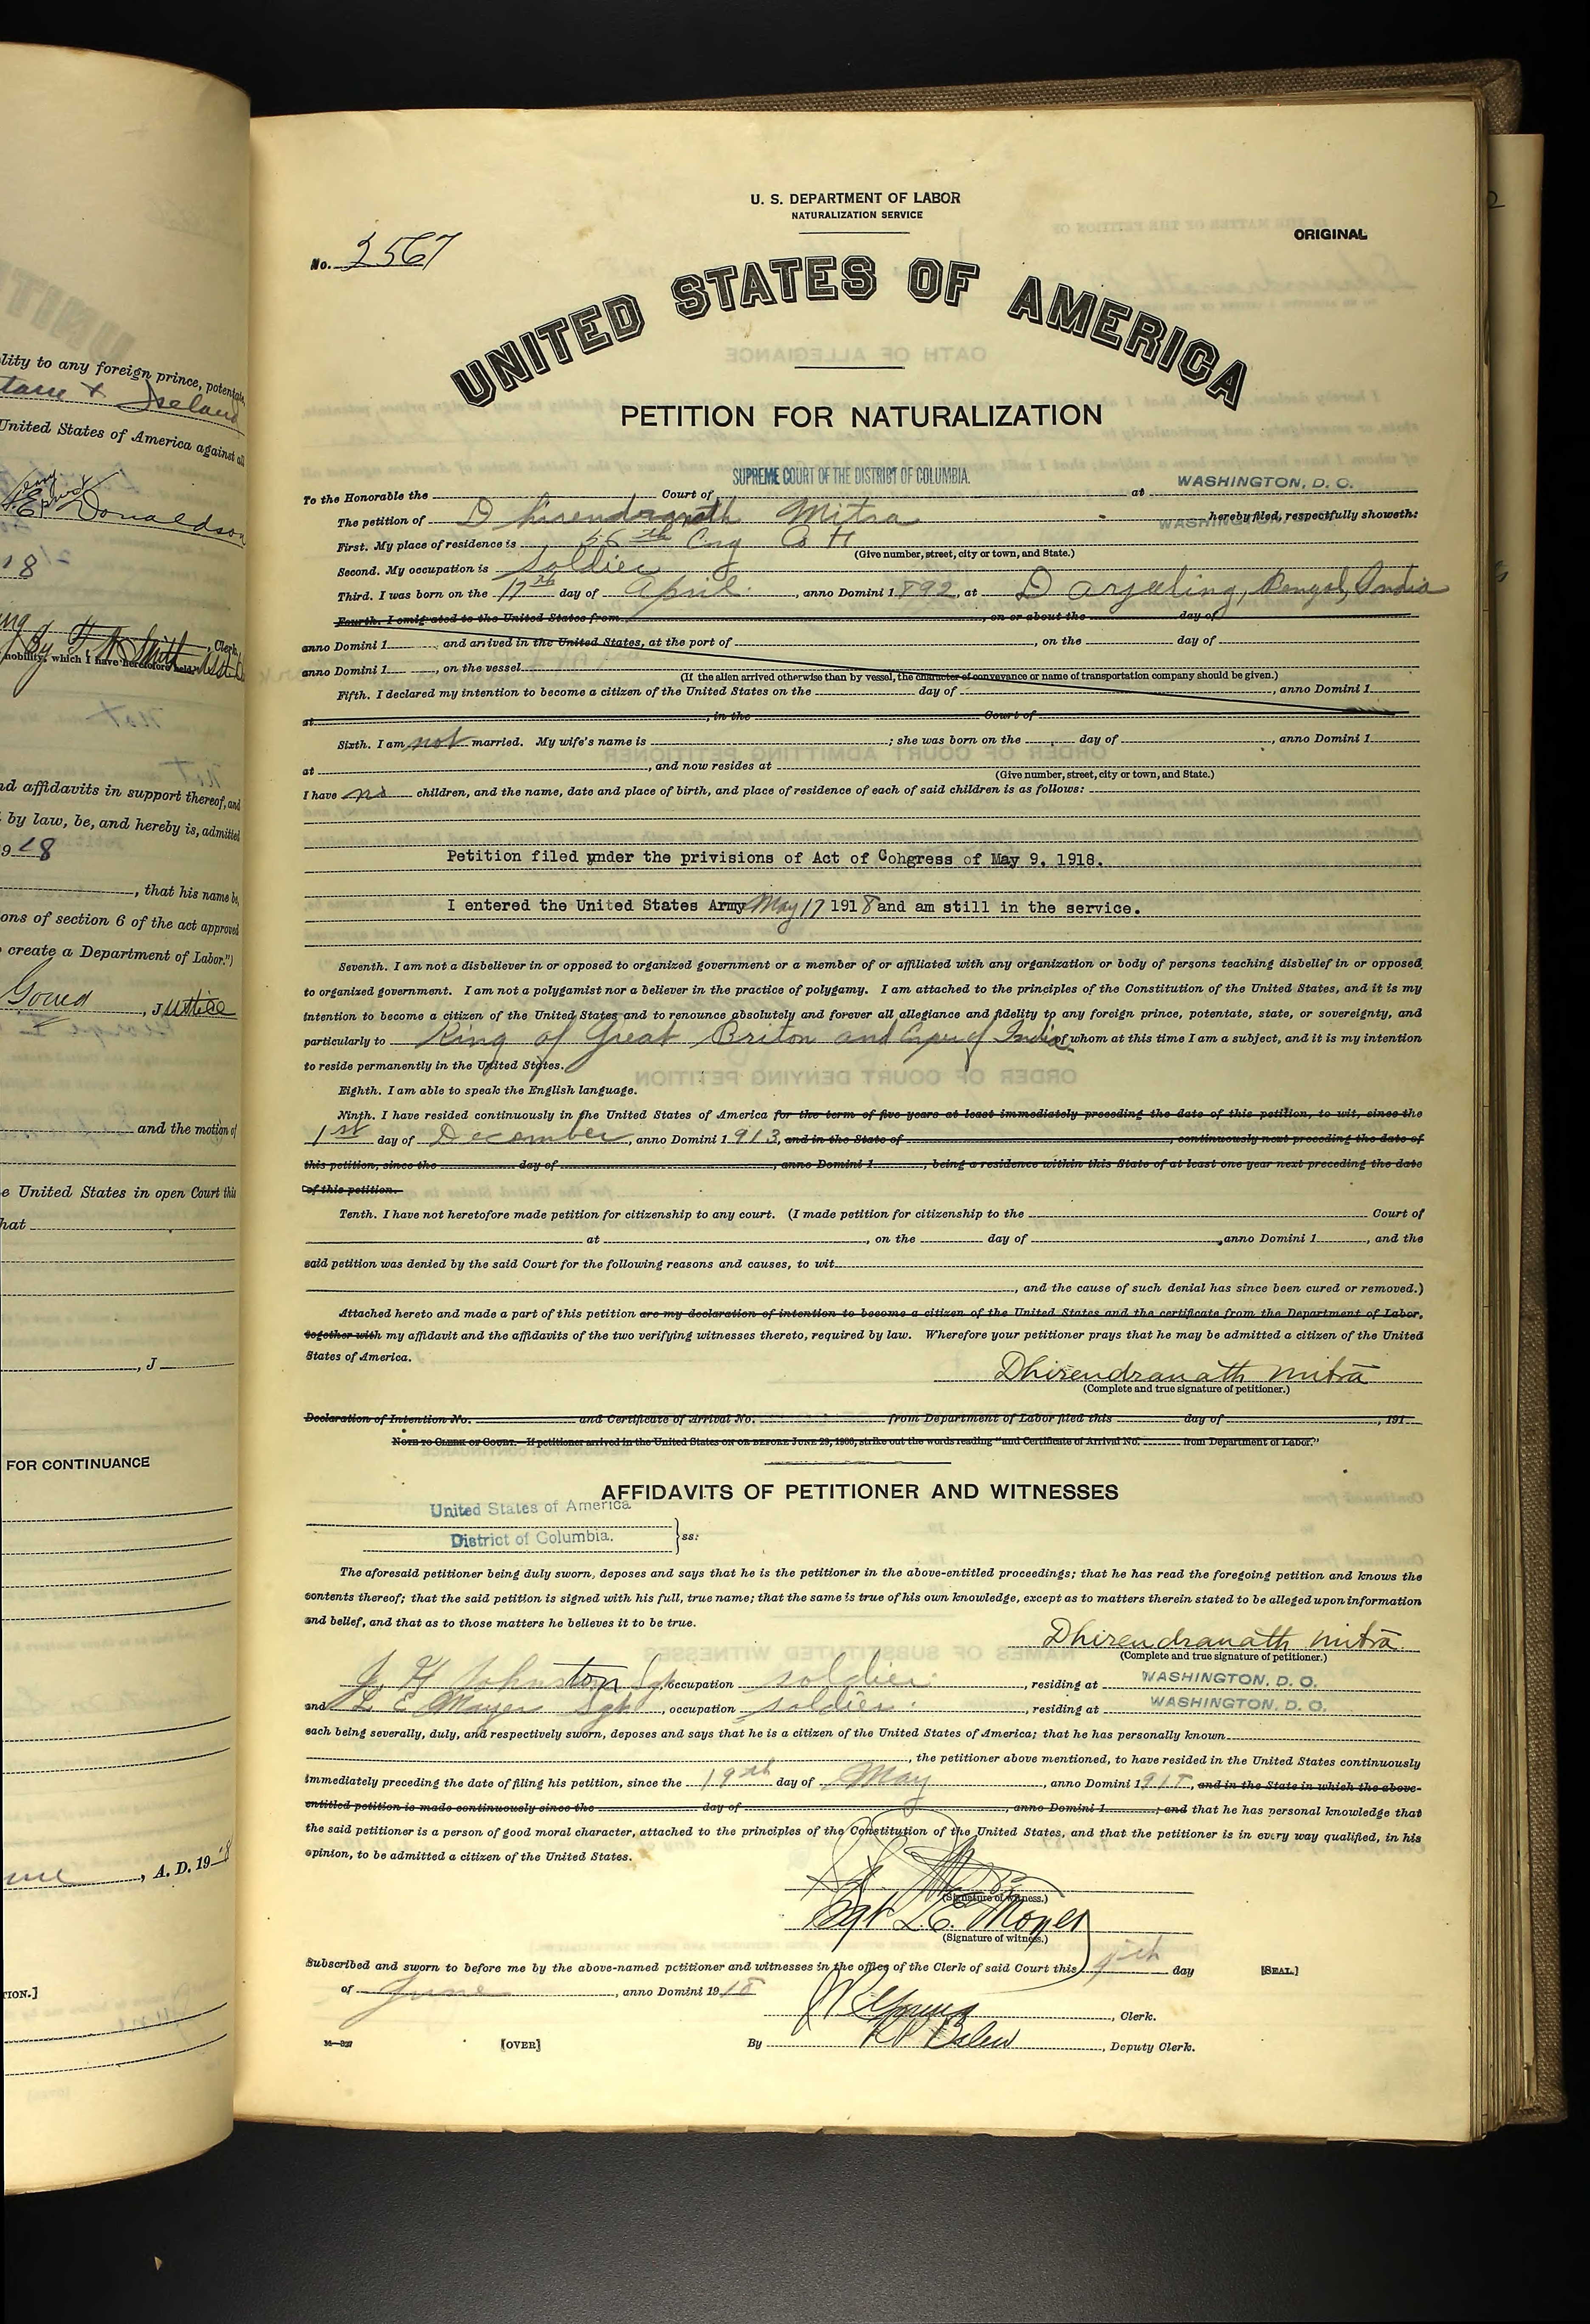 lity to any foreign prince, potentate,
United States of America against all
Donaldson
18
, Clerk.
nobility, which I have heretofore held
nd affidavits in support thereof, and
by law, be, and hereby is, admitted
9 18
, that his name be,
ons of section 6 of the act approved
create a Department of Labor.")
, Justice
and the motion of
e United States in open Court this
hat
, J
FOR CONTINUANCE
, A. D. 19 18
TION.]
U. S. DEPARTMENT OF LABOR
NATURALIZATION SERVICE
ORIGINAL
No. 2567
UNITED STATES OF AMERICA
PETITION FOR NATURALIZATION
SUPREME COURT OF THE DISTRICT OF COLUMBIA.
To the Honorable the Court of at WASHINGTON, D. C.
The petition of Dhirendranath Mitra hereby filed, respectfully showeth:
First. My place of residence is Eng Co H
(Give number, street, city or town, and State.)
Second. My occupation is Soldier
Third. I was born on the 17th day of April , anno Domini 1 892, at Darjeeling, Bengal, India
Fourth. I emigrated to the United States from , on or about the day of
anno Domini 1 , and arrived in the United States, at the port of , on the day of
anno Domini 1 , on the vessel
(If the alien arrived otherwise than by vessel, the character of conveyance or name of transportation company should be given.)
Fifth. I declared my intention to become a citizen of the United States on the day of , anno Domini 1
at , in the Court of
Sixth. I am not married. My wife's name is ; she was born on the day of , anno Domini 1
at , and now resides at
(Give number, street, city or town, and State.)
I have no children, and the name, date and place of birth, and place of residence of each of said children is as follows:
Petition filed under the privisions of Act of Cohgress of May 9, 1918.
I entered the United States Army May 17 1918 and am still in the service.
Seventh. I am not a disbeliever in or opposed to organized government or a member of or affiliated with any organization or body of persons teaching disbelief in or opposed
to organized government. I am not a polygamist nor a believer in the practice of polygamy. I am attached to the principles of the Constitution of the United States, and it is my
intention to become a citizen of the United States and to renounce absolutely and forever all allegiance and fidelity to any foreign prince, potentate, state, or sovereignty, and
particularly to King of Great Briton and of India of whom at this time I am a subject, and it is my intention
to reside permanently in the United States.
Eighth. I am able to speak the English language.
Ninth. I have resided continuously in the United States of America for the term of five years at least immediately preceding the date of this petition, to wit, since the
1st day of December, anno Domini 1 913, and in the State of , continuously next preceding the date of
this petition, since the day of , anno Domini 1 , being a residence within this State of at least one year next preceding the date
of this petition.
Tenth. I have not heretofore made petition for citizenship to any court. (I made petition for citizenship to the Court of
at , on the day of , anno Domini 1 , and the
said petition was denied by the said Court for the following reasons and causes, to wit
, and the cause of such denial has since been cured or removed.)
Attached hereto and made a part of this petition are my declaration of intention to become a citizen of the United States and the certificate from the Department of Labor,
together with my affidavit and the affidavits of the two verifying witnesses thereto, required by law. Wherefore your petitioner prays that he may be admitted a citizen of the United
States of America.
Dhirendranath Mitra
(Complete and true signature of petitioner.)
Declaration of Intention No. and Certificate of Arrival No. from Department of Labor filed this day of , 191
NOTE TO CLERK OF COURT.—If petitioner arrived in the United States ON OR BEFORE JUNE 29, 1906, strike out the words reading "and Certificate of Arrival No. from Department of Labor."
AFFIDAVITS OF PETITIONER AND WITNESSES
United States of America
District of Columbia. } ss:
The aforesaid petitioner being duly sworn, deposes and says that he is the petitioner in the above-entitled proceedings; that he has read the foregoing petition and knows the
contents thereof; that the said petition is signed with his full, true name; that the same is true of his own knowledge, except as to matters therein stated to be alleged upon information
and belief, and that as to those matters he believes it to be true.
Dhirendranath Mitra
(Complete and true signature of petitioner.)
J. H Johnston Sgt, occupation soldier , residing at WASHINGTON, D. C.
and L E Moyer Sgt , occupation soldier , residing at WASHINGTON, D. C.
each being severally, duly, and respectively sworn, deposes and says that he is a citizen of the United States of America; that he has personally known
, the petitioner above mentioned, to have resided in the United States continuously
immediately preceding the date of filing his petition, since the 19th day of May , anno Domini 1 , and in the State in which the above-
entitled petition is made continuously since the day of , anno Domini 1 ; and that he has personal knowledge that
the said petitioner is a person of good moral character, attached to the principles of the Constitution of the United States, and that the petitioner is in every way qualified, in his
opinion, to be admitted a citizen of the United States.
(Signature of witness.)
Sgt L. E. Moyer
(Signature of witness.)
Subscribed and sworn to before me by the above-named petitioner and witnesses in the office of the Clerk of said Court this day [SEAL.]
of June , anno Domini 19 18
J R Young , Clerk.
M—327 [OVER] By , Deputy Clerk.